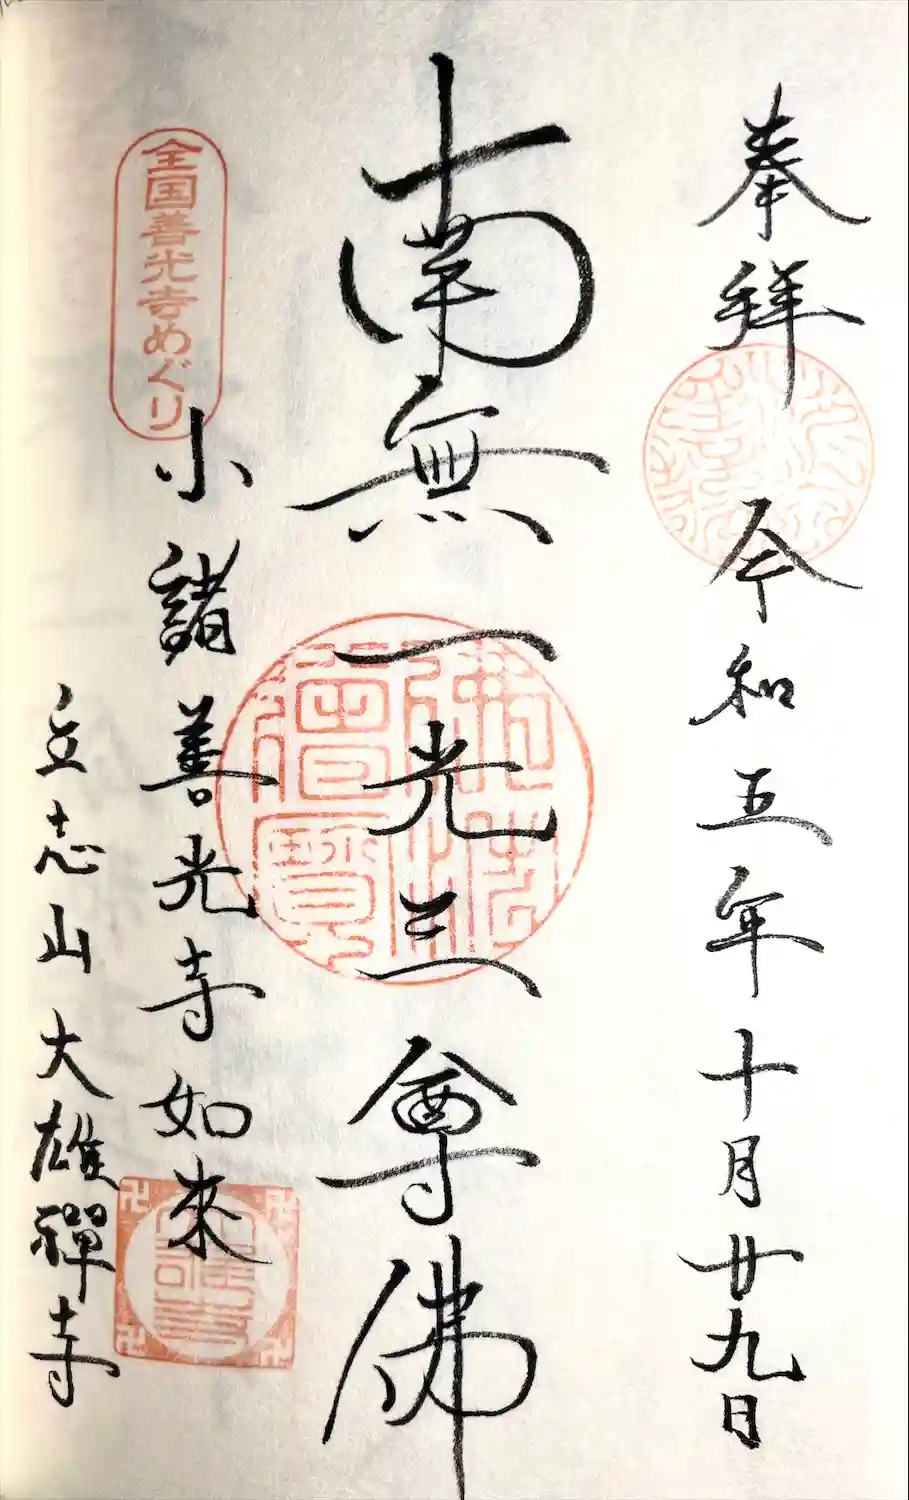 奉拜 令和五年十月廿九日
南無一光三尊佛
全国善光寺めぐり
小諸善光寺如来
立志山大雄禪寺
佛法僧寳